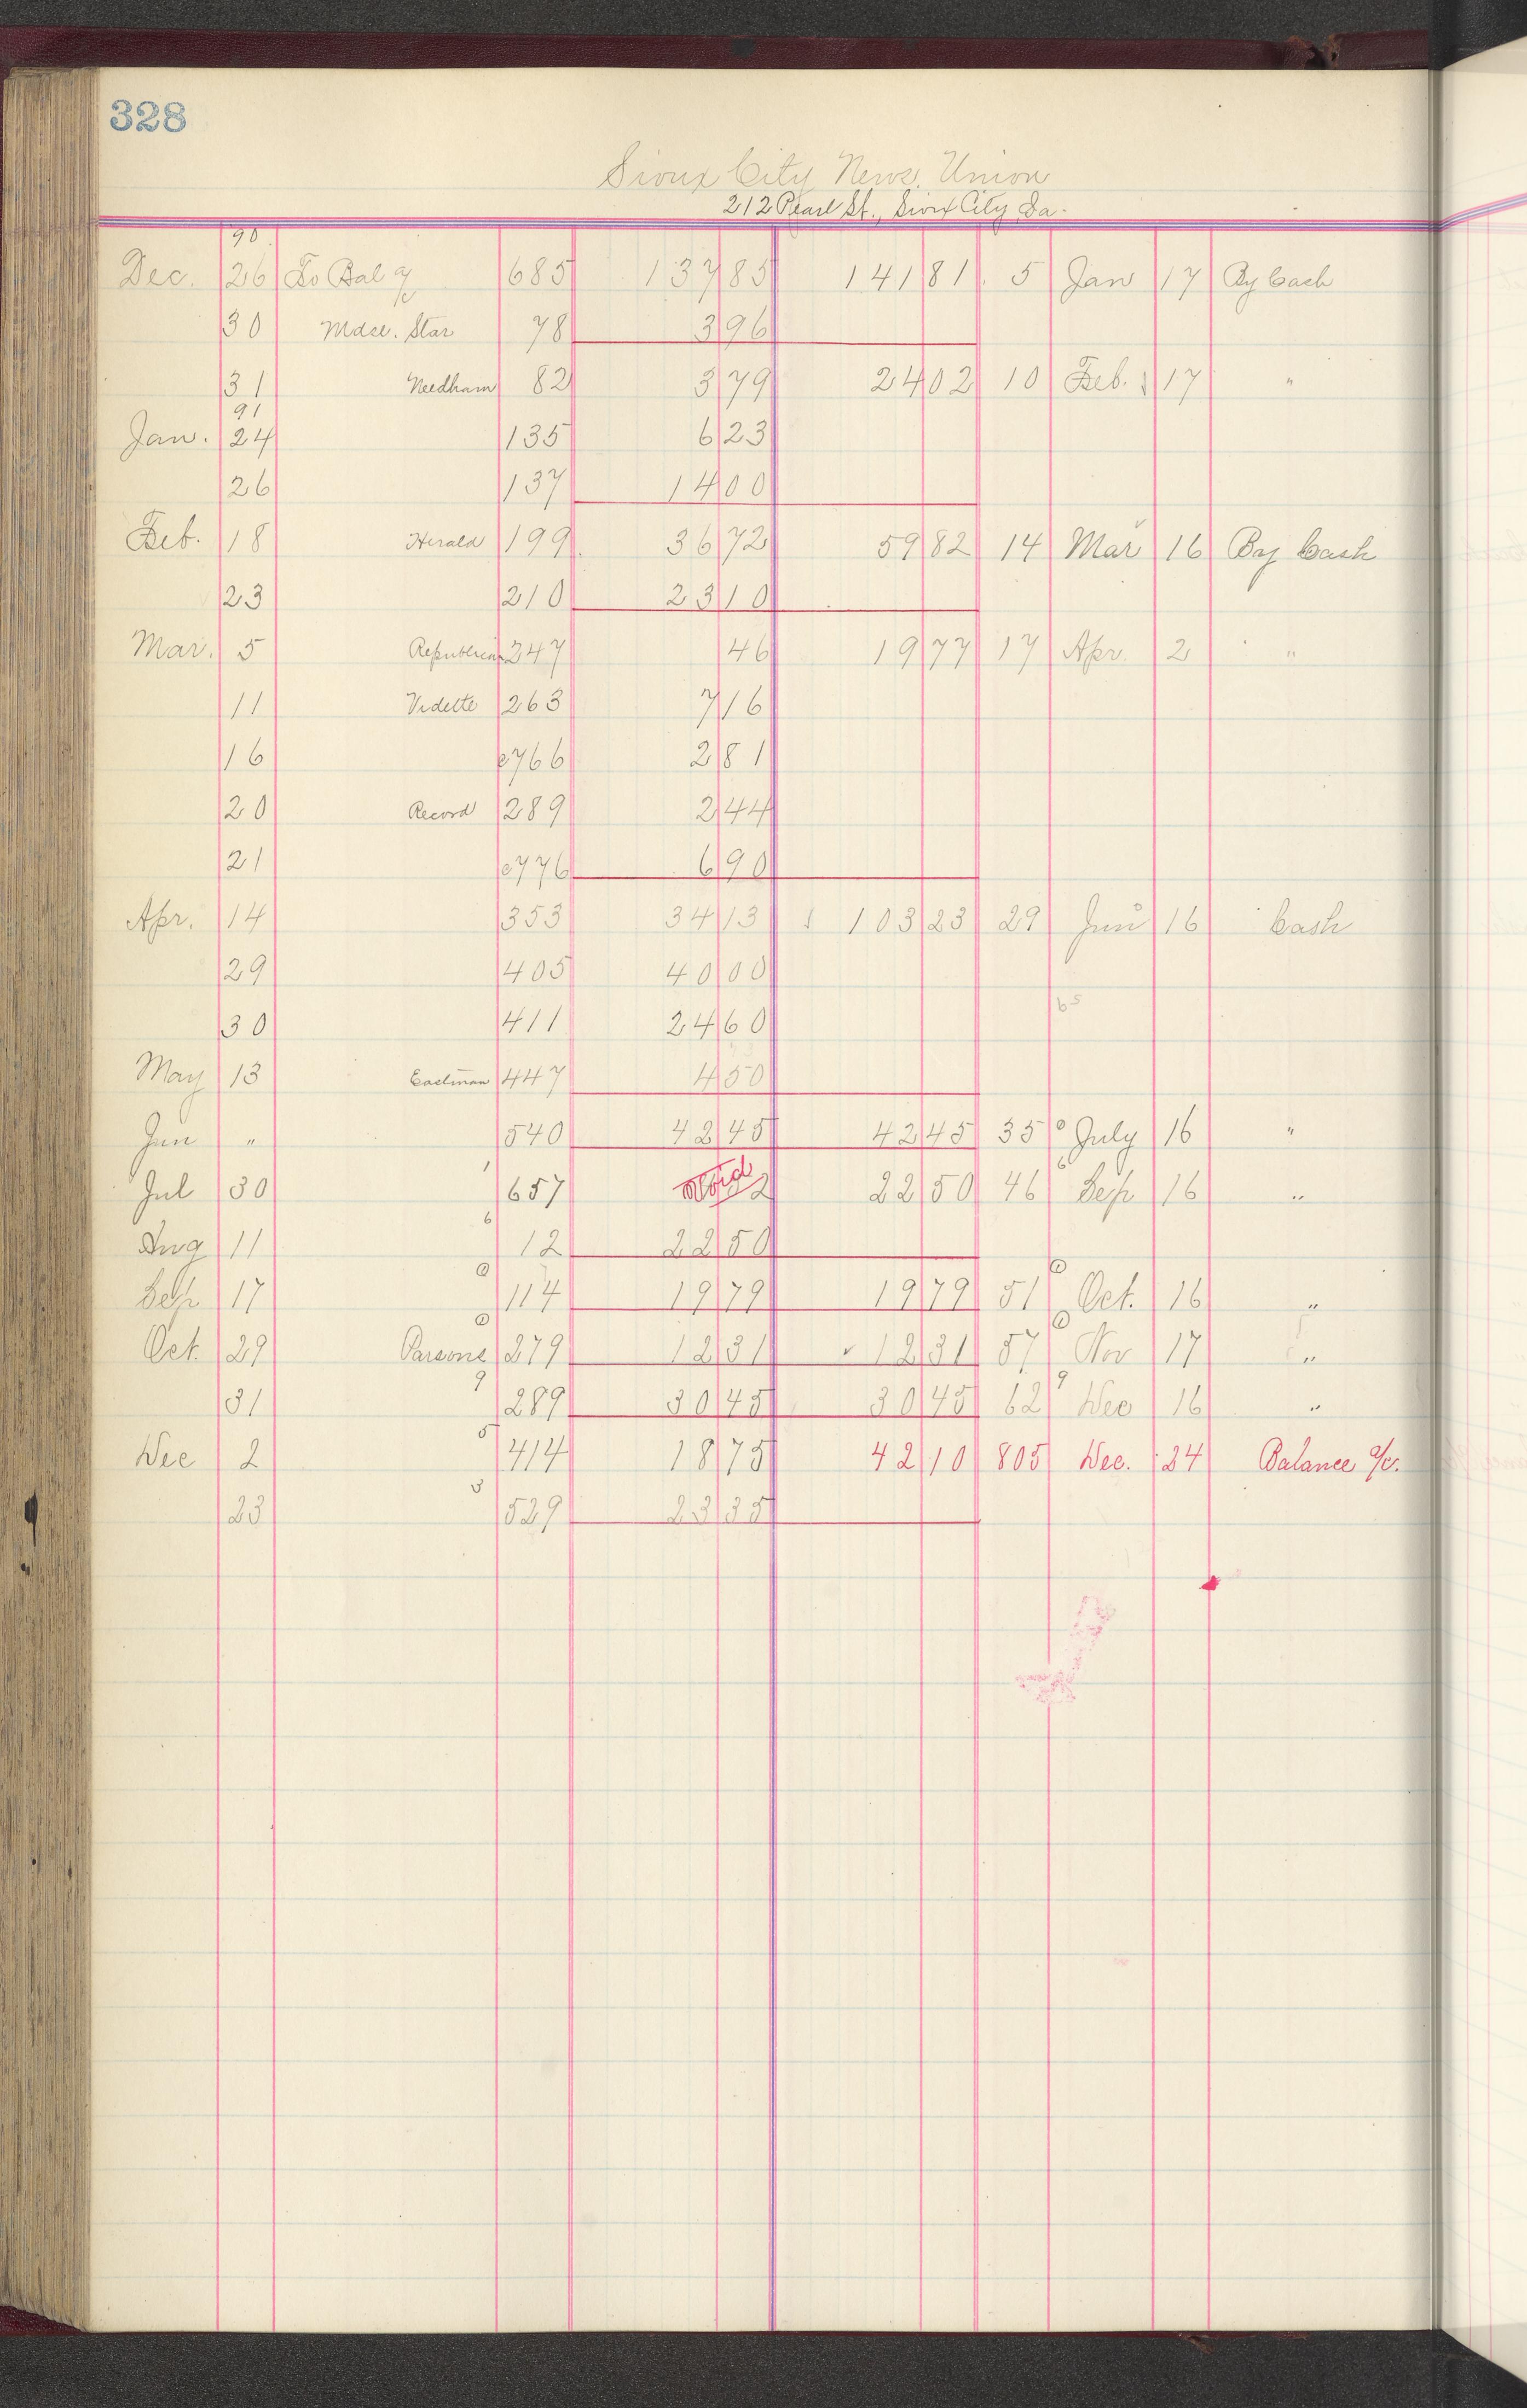 328
Sioux City News. Union
212 Pearl St., Sioux City Ia.
90
Dec. 26 To Bal a/c 685 137 85 141 81 5 Jan 17 By Cash
30 Mdse. Star 78 3 96
31 Needham 82 3 79 24 02 10 Feb. 17 "
91
Jan. 24 135 6 23
26 137 14 00
Feb. 18 Herald 199 36 72 59 82 14 Mar 16 By Cash
23 210 23 10
Mar. 5 Republican 247 46 19 77 17 Apr. 2 "
11 Vidette 263 7 16
16 c766 2 81
20 Record 289 2 44
21 c776 6 90
Apr. 14 353 34 13 103 23 29 Jun 16 Cash
29 405 40 00
30 411 24 60
May 13 Eastman 447 4 50
Jun " 540 42 45 42 45 35 July 16 "
Jul 30 1 657 Void 2 22 50 46 6 Sep 16 "
Aug 11 6 12 22 50
Sep 17 114 19 79 19 79 51 Oct. 16 "
Oct. 29 Parsons 279 12 31 12 31 57 Nov 17 "
31 9 289 30 45 30 45 62 9 Dec 16 "
Dec 2 5 414 18 75 42 10 805 Dec. 24 Balance a/c.
23 3 529 23 35